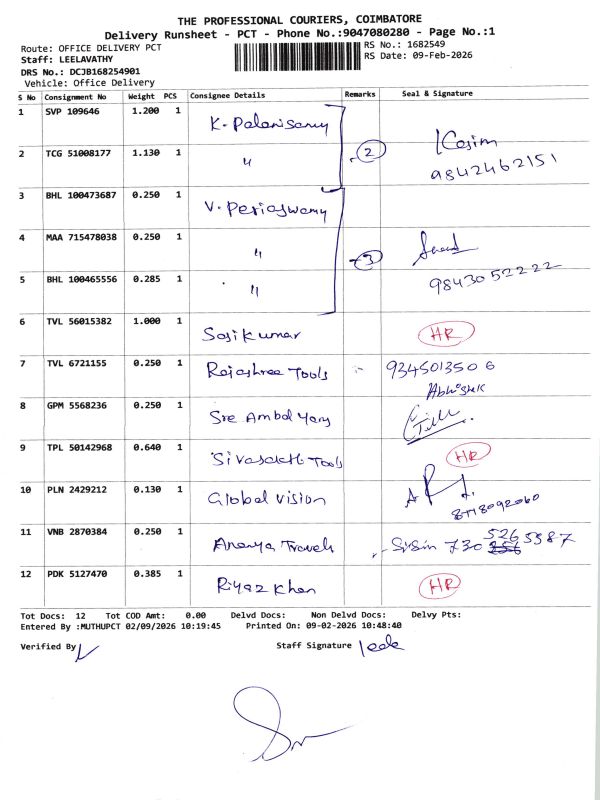 THE PROFESSIONAL COURIERS, COIMBATORE
Delivery Runsheet - PCT - Phone No.:9047080280 - Page No.:1
Route: OFFICE DELIVERY PCT
RS No.: 1682549
Staff: LEELAVATHY
RS Date: 09-Feb-2026
DRS No.: DCJB168254901
Vehicle: Office Delivery
S No Consignment No Weight PCS Consignee Details Remarks Seal & Signature
1 SVP 109646 1.200 1 K. Palanisamy
2 TCG 51008177 1.130 1 " 2 9842462151
3 BHL 100473687 0.250 1 V. Periaswamy
4 MAA 715478038 0.250 1 " 3
5 BHL 100465556 0.285 1 " 9843052222
6 TVL 56015382 1.000 1 Sasikumar HR
7 TVL 6721155 0.250 1 Rajashree Tools 9345013506
Abhishek
8 GPM 5568236 0.250 1 Sre Ambal Yarn
9 TPL 50142968 0.640 1 Sivasakthi Tools HR
10 PLN 2429212 0.130 1 Global Vision
11 VNB 2870384 0.250 1 Ananya Travels 730 526 5587
12 PDK 5127470 0.385 1 Riyaz Khan HR
Tot Docs: 12 Tot COD Amt: 0.00 Delvd Docs: Non Delvd Docs: Delvy Pts:
Entered By :MUTHUPCT 02/09/2026 10:19:45 Printed On: 09-02-2026 10:48:40
Verified By Staff Signature